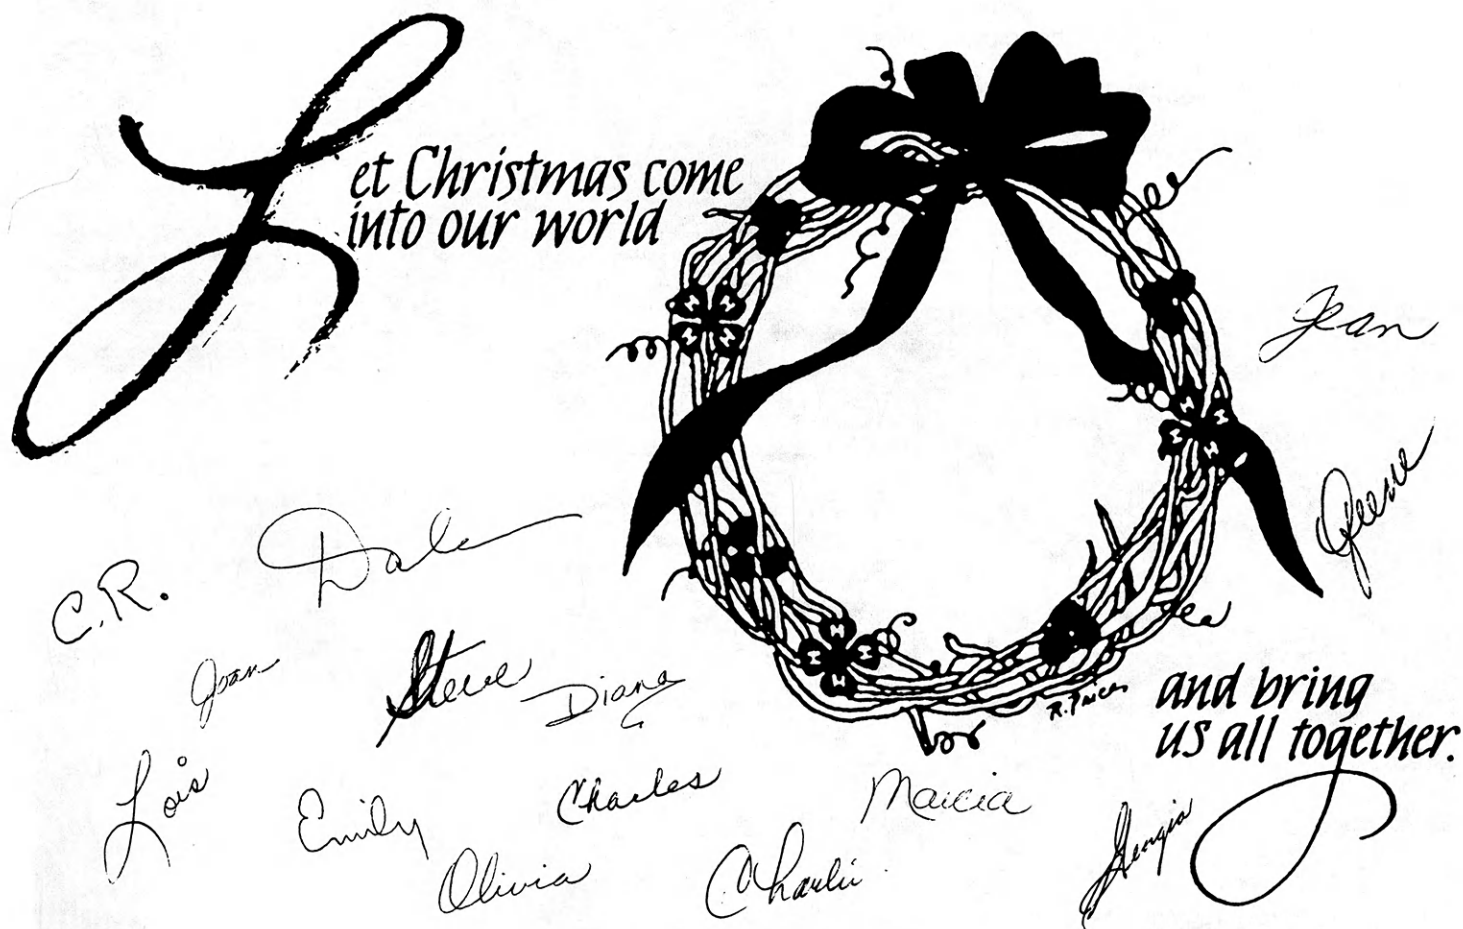 Let Christmas come
into our world
Jean
C.R.
Dale
Joan
Steve
Diana
R. Price
and bring
us all together.
Lois
Emily
Charles
Marcia
Georgia
Olivia
Charlie